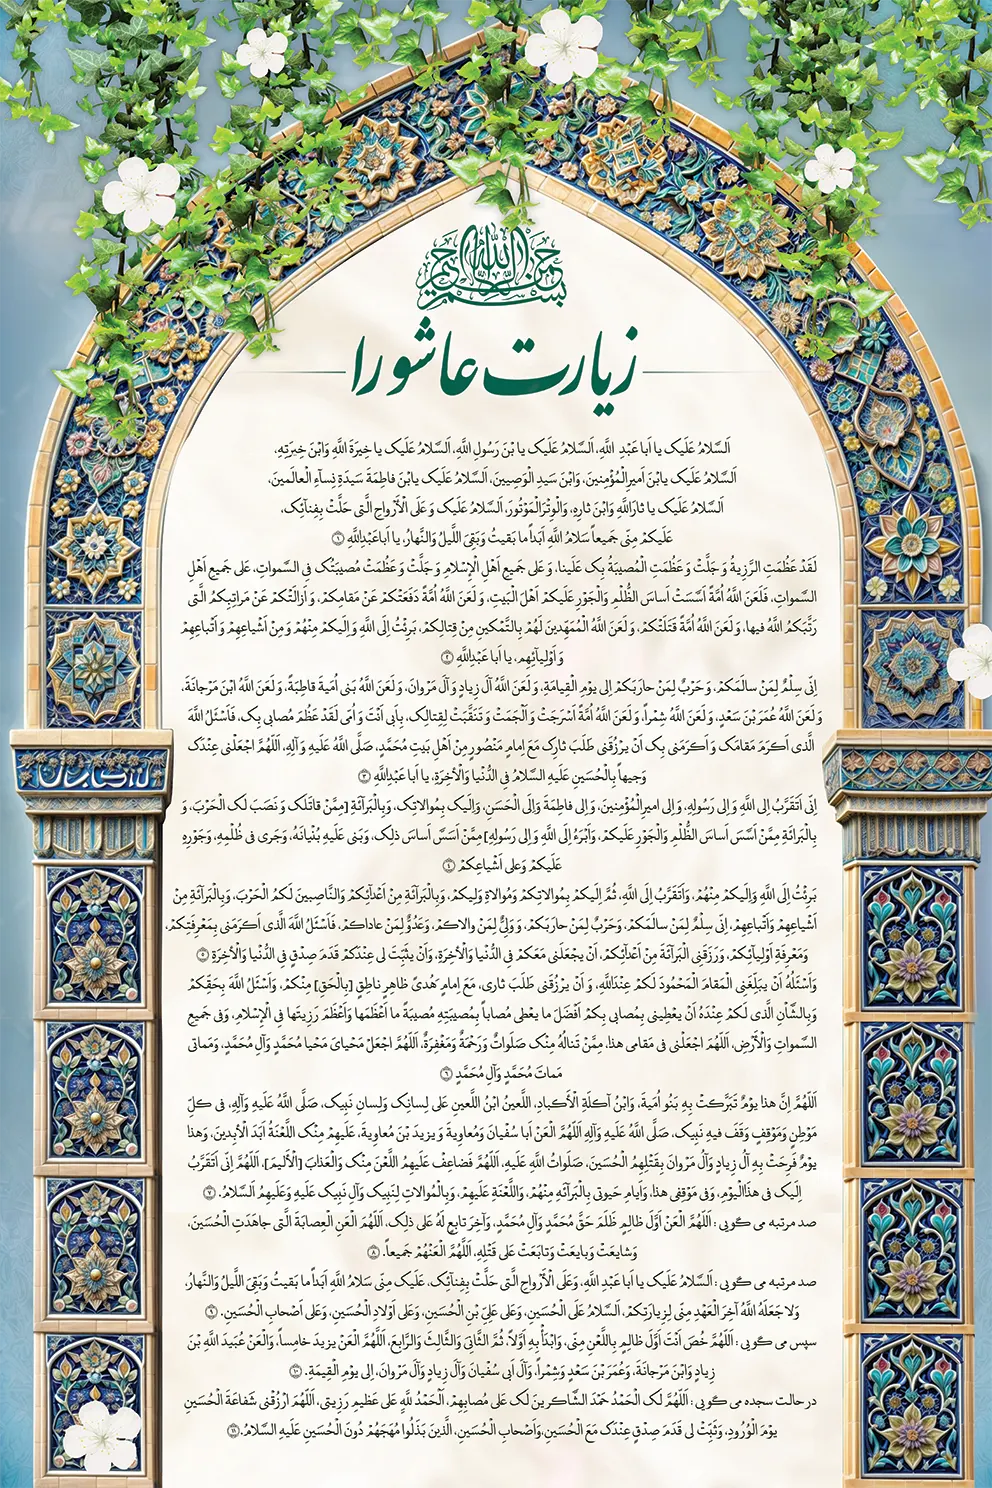 بسم الله الرحمن الرحیم
زیارت عاشورا
اَلسَّلامُ عَلَیک یا اَبا عَبْدِ اللَّهِ، اَلسَّلامُ عَلَیک یا بْنَ رَسُولِ اللَّهِ، اَلسَّلامُ عَلَیک یا خِیرَةَ اللَّهِ وَابْنَ خِیرَتِهِ،
اَلسَّلامُ عَلَیک یابْنَ اَمیرِالْمُؤْمِنینَ، وَابْنَ سَیدِ الْوَصِیینَ، اَلسَّلامُ عَلَیک یابْنَ فاطِمَةَ سَیدَةِ نِسآءِ الْعالَمینَ،
اَلسَّلامُ عَلَیک یا ثارَاللَّهِ وَابْنَ ثارِهِ، وَالْوِتْرَالْمَوْتُورَ، اَلسَّلامُ عَلَیک وَ عَلَی الْأَرْواحِ الَّتی حَلَّتْ بِفِنآئِک،
عَلَیکمْ مِنّی جَمیعاً سَلامُ اللَّهِ اَبَداً ما بَقیتُ وَ بَقِی اللَّیلُ وَالنَّهارُ، یا اَباعَبْدِاللَّهِ ①
لَقَدْ عَظُمَتِ الرَّزِیةُ وَ جَلَّتْ وَ عَظُمَتِ الْمُصیبَةُ بِک عَلَینا، وَ عَلی جَمیعِ اَهْلِ الْإِسْلامِ وَ جَلَّتْ وَ عَظُمَتْ مُصیبَتُک فِی السَّمواتِ، عَلی جَمیعِ اَهْلِ
السَّمواتِ، فَلَعَنَ اللَّهُ اُمَّةً اَسَّسَتْ اَساسَ الظُّلْمِ وَالْجَوْرِ عَلَیکمْ اَهْلَ الْبَیتِ، وَ لَعَنَ اللَّهُ اُمَّةً دَفَعَتْکمْ عَنْ مَقامِکمْ، وَ اَزالَتْکمْ عَنْ مَراتِبِکمُ الَّتی
رَتَّبَکمُ اللَّهُ فیها، وَ لَعَنَ اللَّهُ اُمَّةً قَتَلَتْکمْ، وَ لَعَنَ اللَّهُ الْمُمَهِّدینَ لَهُمْ بِالتَّمْکینِ مِنْ قِتالِکمْ، بَرِئْتُ اِلَی اللَّهِ وَ اِلَیکمْ مِنْهُمْ وَ مِنْ اَشْیاعِهِمْ وَ اَتْباعِهِمْ
وَ اَوْلِیآئِهِم، یا اَبا عَبْدِاللَّهِ ②
اِنّی سِلْمٌ لِمَنْ سالَمَکمْ، وَ حَرْبٌ لِمَنْ حارَبَکمْ اِلی یوْمِ الْقِیامَةِ، وَ لَعَنَ اللَّهُ آلَ زِیادٍ وَ آلَ مَرْوانَ، وَ لَعَنَ اللَّهُ بَنی اُمَیةَ قاطِبَةً، وَ لَعَنَ اللَّهُ ابْنَ مَرْجانَةَ،
وَ لَعَنَ اللَّهُ عُمَرَ بْنَ سَعْدٍ، وَ لَعَنَ اللَّهُ شِمْراً، وَ لَعَنَ اللَّهُ اُمَّةً اَسْرَجَتْ وَ اَلْجَمَتْ وَ تَنَقَّبَتْ لِقِتالِک، بِاَبی اَنْتَ وَ اُمّی لَقَدْ عَظُمَ مُصابی بِک، فَاَسْئَلُ اللَّهَ
الَّذی اَکرَمَ مَقامَک وَ اَکرَمَنی بِک اَنْ یرْزُقَنی طَلَبَ ثارِک مَعَ اِمامٍ مَنْصُورٍ مِنْ اَهْلِ بَیتِ مُحَمَّدٍ، صَلَّی اللَّهُ عَلَیهِ وَ آلِهِ، اَللّهُمَّ اجْعَلْنی عِنْدَک
وَجیهاً بِالْحُسَینِ عَلَیهِ السَّلامُ فِی الدُّنْیا وَ الْأخِرَةِ، یا اَبا عَبْدِاللَّهِ ③
اِنّی اَتَقَرَّبُ اِلَی اللَّهِ وَ اِلی رَسُولِهِ، وَ اِلی امیرِالْمُؤْمِنینَ، وَ اِلی فاطِمَةَ وَ اِلَی الْحَسَنِ، وَ اِلَیک بِمُوالاتِک، وَ بِالْبَرائَةِ [مِمَّنْ قاتَلَک وَ نَصَبَ لَک الْحَرْبَ، وَ
بِالْبَرائَةِ مِمَّنْ اَسَّسَ اَساسَ الظُّلْمِ وَالْجَوْرِ عَلَیکمْ، وَ اَبْرَءُ اِلَی اللَّهِ وَ اِلی رَسُولِهِ] مِمَّنْ اَسَسَّ اَساسَ ذلِک، وَ بَنی عَلَیهِ بُنْیانَهُ، وَ جَری فی ظُلْمِهِ، وَ جَوْرِهِ
عَلَیکمْ وَ عَلی اَشْیاعِکمْ ④
بَرِئْتُ اِلَی اللَّهِ وَ اِلَیکمْ مِنْهُمْ، وَ اَتَقَرَّبُ اِلَی اللَّهِ، ثُمَّ اِلَیکمْ بِمُوالاتِکمْ وَ مُوالاةِ وَلِیکمْ، وَ بِالْبَرآئَةِ مِنْ اَعْدآئِکمْ وَالنَّاصِبینَ لَکمُ الْحَرْبَ، وَ بِالْبَرآئَةِ مِنْ
اَشْیاعِهِمْ وَ اَتْباعِهِمْ، اِنّی سِلْمٌ لِمَنْ سالَمَکمْ، وَ حَرْبٌ لِمَنْ حارَبَکمْ، وَ وَلِی لِمَنْ والاکمْ، وَ عَدُوٌّ لِمَنْ عاداکمْ، فَاَسْئَلُ اللَّهَ الَّذی اَکرَمَنی بِمَعْرِفَتِکمْ،
وَ مَعْرِفَةِ اَوْلِیآئِکمْ، وَ رَزَقَنِی الْبَرآئَةَ مِنْ اَعْدآئِکمْ، اَنْ یجْعَلَنی مَعَکمْ فِی الدُّنْیا وَ الْأخِرَةِ، وَ اَنْ یثَبِّتَ لی عِنْدَکمْ قَدَمَ صِدْقٍ فِی الدُّنْیا وَ الْأخِرَةِ ⑤
وَ اَسْئَلُهُ اَنْ یبَلِّغَنِی الْمَقامَ الْمَحْمُودَ لَکمْ عِنْدَاللَّهِ، وَ اَنْ یرْزُقَنی طَلَبَ ثاری، مَعَ اِمامٍ هُدیً ظاهِرٍ ناطِقٍ [بِالْحَقِ] مِنْکمْ، وَ اَسْئَلُ اللَّهَ بِحَقِّکمْ
وَ بِالشَّاْنِ الَّذی لَکمْ عِنْدَهُ اَنْ یعْطِینی بِمُصابی بِکمْ اَفْضَلَ ما یعْطی مُصاباً بِمُصیبَتِهِ مُصیبَةً ما اَعْظَمَها وَ اَعْظَمَ رَزِیتَها فِی الْإِسْلامِ، وَ فی جَمیعِ
السَّمواتِ وَالْأَرْضِ، اَللّهُمَّ اجْعَلْنی فی مَقامی هذا، مِمَّنْ تَنالُهُ مِنْک صَلَواتٌ وَ رَحْمَةٌ وَ مَغْفِرَةٌ، اَللّهُمَّ اجْعَلْ مَحْیای مَحْیا مُحَمَّدٍ وَ آلِ مُحَمَّدٍ، وَ مَماتی
مَماتَ مُحَمَّدٍ وَ آلِ مُحَمَّدٍ ⑥
اَللّهُمَّ اِنَّ هذا یوْمٌ تَبَرَّکتْ بِهِ بَنُو اُمَیةَ، وَ ابْنُ آکلَةِ الْأَکبادِ، اللَّعینُ ابْنُ اللَّعینِ عَلی لِسانِک وَ لِسانِ نَبِیک، صَلَّی اللَّهُ عَلَیهِ وَ آلِهِ، فی کلِّ
مَوْطِنٍ وَ مَوْقِفٍ وَقَفَ فیهِ نَبِیک، صَلَّی اللَّهُ عَلَیهِ وَ آلِهِ اَللّهُمَّ الْعَنْ اَبا سُفْیانَ وَ مُعاوِیةَ وَ یزیدَ بْنَ مُعاوِیةَ، عَلَیهِمْ مِنْک اللَّعْنَةُ اَبَدَ الْأبِدینَ، وَ هذا
یوْمٌ فَرِحَتْ بِهِ آلُ زِیادٍ وَ آلُ مَرْوانَ بِقَتْلِهِمُ الْحُسَینَ، صَلَواتُ اللَّهِ عَلَیهِ، اَللّهُمَّ فَضاعِفْ عَلَیهِمُ اللَّعْنَ مِنْک وَ الْعَذابَ [الْأَلیمَ]، اَللّهُمَّ اِنّی اَتَقَرَّبُ
اِلَیک فی هذَاالْیوْمِ، وَ فی مَوْقِفی هذا، وَ اَیامِ حَیوتی بِالْبَرآئَةِ مِنْهُمْ، وَ اللَّعْنَةِ عَلَیهِمْ، وَ بِالْمُوالاتِ لِنَبِیک وَ آلِ نَبِیک عَلَیهِ وَ عَلَیهِمُ اَلسَّلامُ. ⑦
صد مرتبه می گویی : اَللّهُمَّ الْعَنْ اَوَّلَ ظالِمٍ ظَلَمَ حَقَّ مُحَمَّدٍ وَ آلِ مُحَمَّدٍ، وَ آخِرَ تابِعٍ لَهُ عَلی ذلِک، اَللّهُمَّ الْعَنِ الْعِصابَةَ الَّتی جاهَدَتِ الْحُسَینَ،
وَ شایعَتْ وَ بایعَتْ وَ تابَعَتْ عَلی قَتْلِهِ، اَللّهُمَّ الْعَنْهُمْ جَمیعاً. ⑧
صد مرتبه می گویی : اَلسَّلامُ عَلَیک یا اَبا عَبْدِ اللَّهِ، وَ عَلَی الْأَرْواحِ الَّتی حَلَّتْ بِفِنآئِک، عَلَیک مِنّی سَلامُ اللَّهِ اَبَداً ما بَقیتُ وَ بَقِی اللَّیلُ وَالنَّهارُ،
وَ لا جَعَلَهُ اللَّهُ آخِرَ الْعَهْدِ مِنّی لِزِیارَتِکمْ، اَلسَّلامُ عَلَی الْحُسَینِ، وَ عَلی عَلِی بْنِ الْحُسَینِ، وَ عَلی اَوْلادِ الْحُسَینِ، وَ عَلی اَصْحابِ الْحُسَینِ. ⑨
سپس می گویی : اَللّهُمَّ خُصَّ اَنْتَ اَوَّلَ ظالِمٍ بِاللَّعْنِ مِنّی، وَ ابْدَأْ بِهِ اَوَّلاً، ثُمَّ الثَّانِی وَالثَّالِثَ وَالرَّابِعَ، اَللّهُمَّ الْعَنْ یزیدَ خامِساً، وَ الْعَنْ عُبَیدَ اللَّهِ بْنَ
زِیادٍ وَ ابْنَ مَرْجانَةَ، وَ عُمَرَ بْنَ سَعْدٍ وَ شِمْراً، وَ آلَ اَبی سُفْیانَ وَ آلَ زِیادٍ وَ آلَ مَرْوانَ، اِلی یوْمِ الْقِیمَةِ. ⑩
در حالت سجده می گویی : اَللّهُمَّ لَک الْحَمْدُ حَمْدَ الشَّاکرینَ لَک عَلی مُصابِهِمْ، اَلْحَمْدُ للَّهِ عَلی عَظیمِ رَزِیتی، اَللّهُمَّ ارْزُقْنی شَفاعَةَ الْحُسَینِ
یوْمَ الْوُرُودِ، وَ ثَبِّتْ لی قَدَمَ صِدْقٍ عِنْدَک مَعَ الْحُسَینِ، وَ اَصْحابِ الْحُسَینِ، الَّذینَ بَذَلُوا مُهَجَهُمْ دُونَ الْحُسَینِ عَلَیهِ السَّلامُ. ⑪